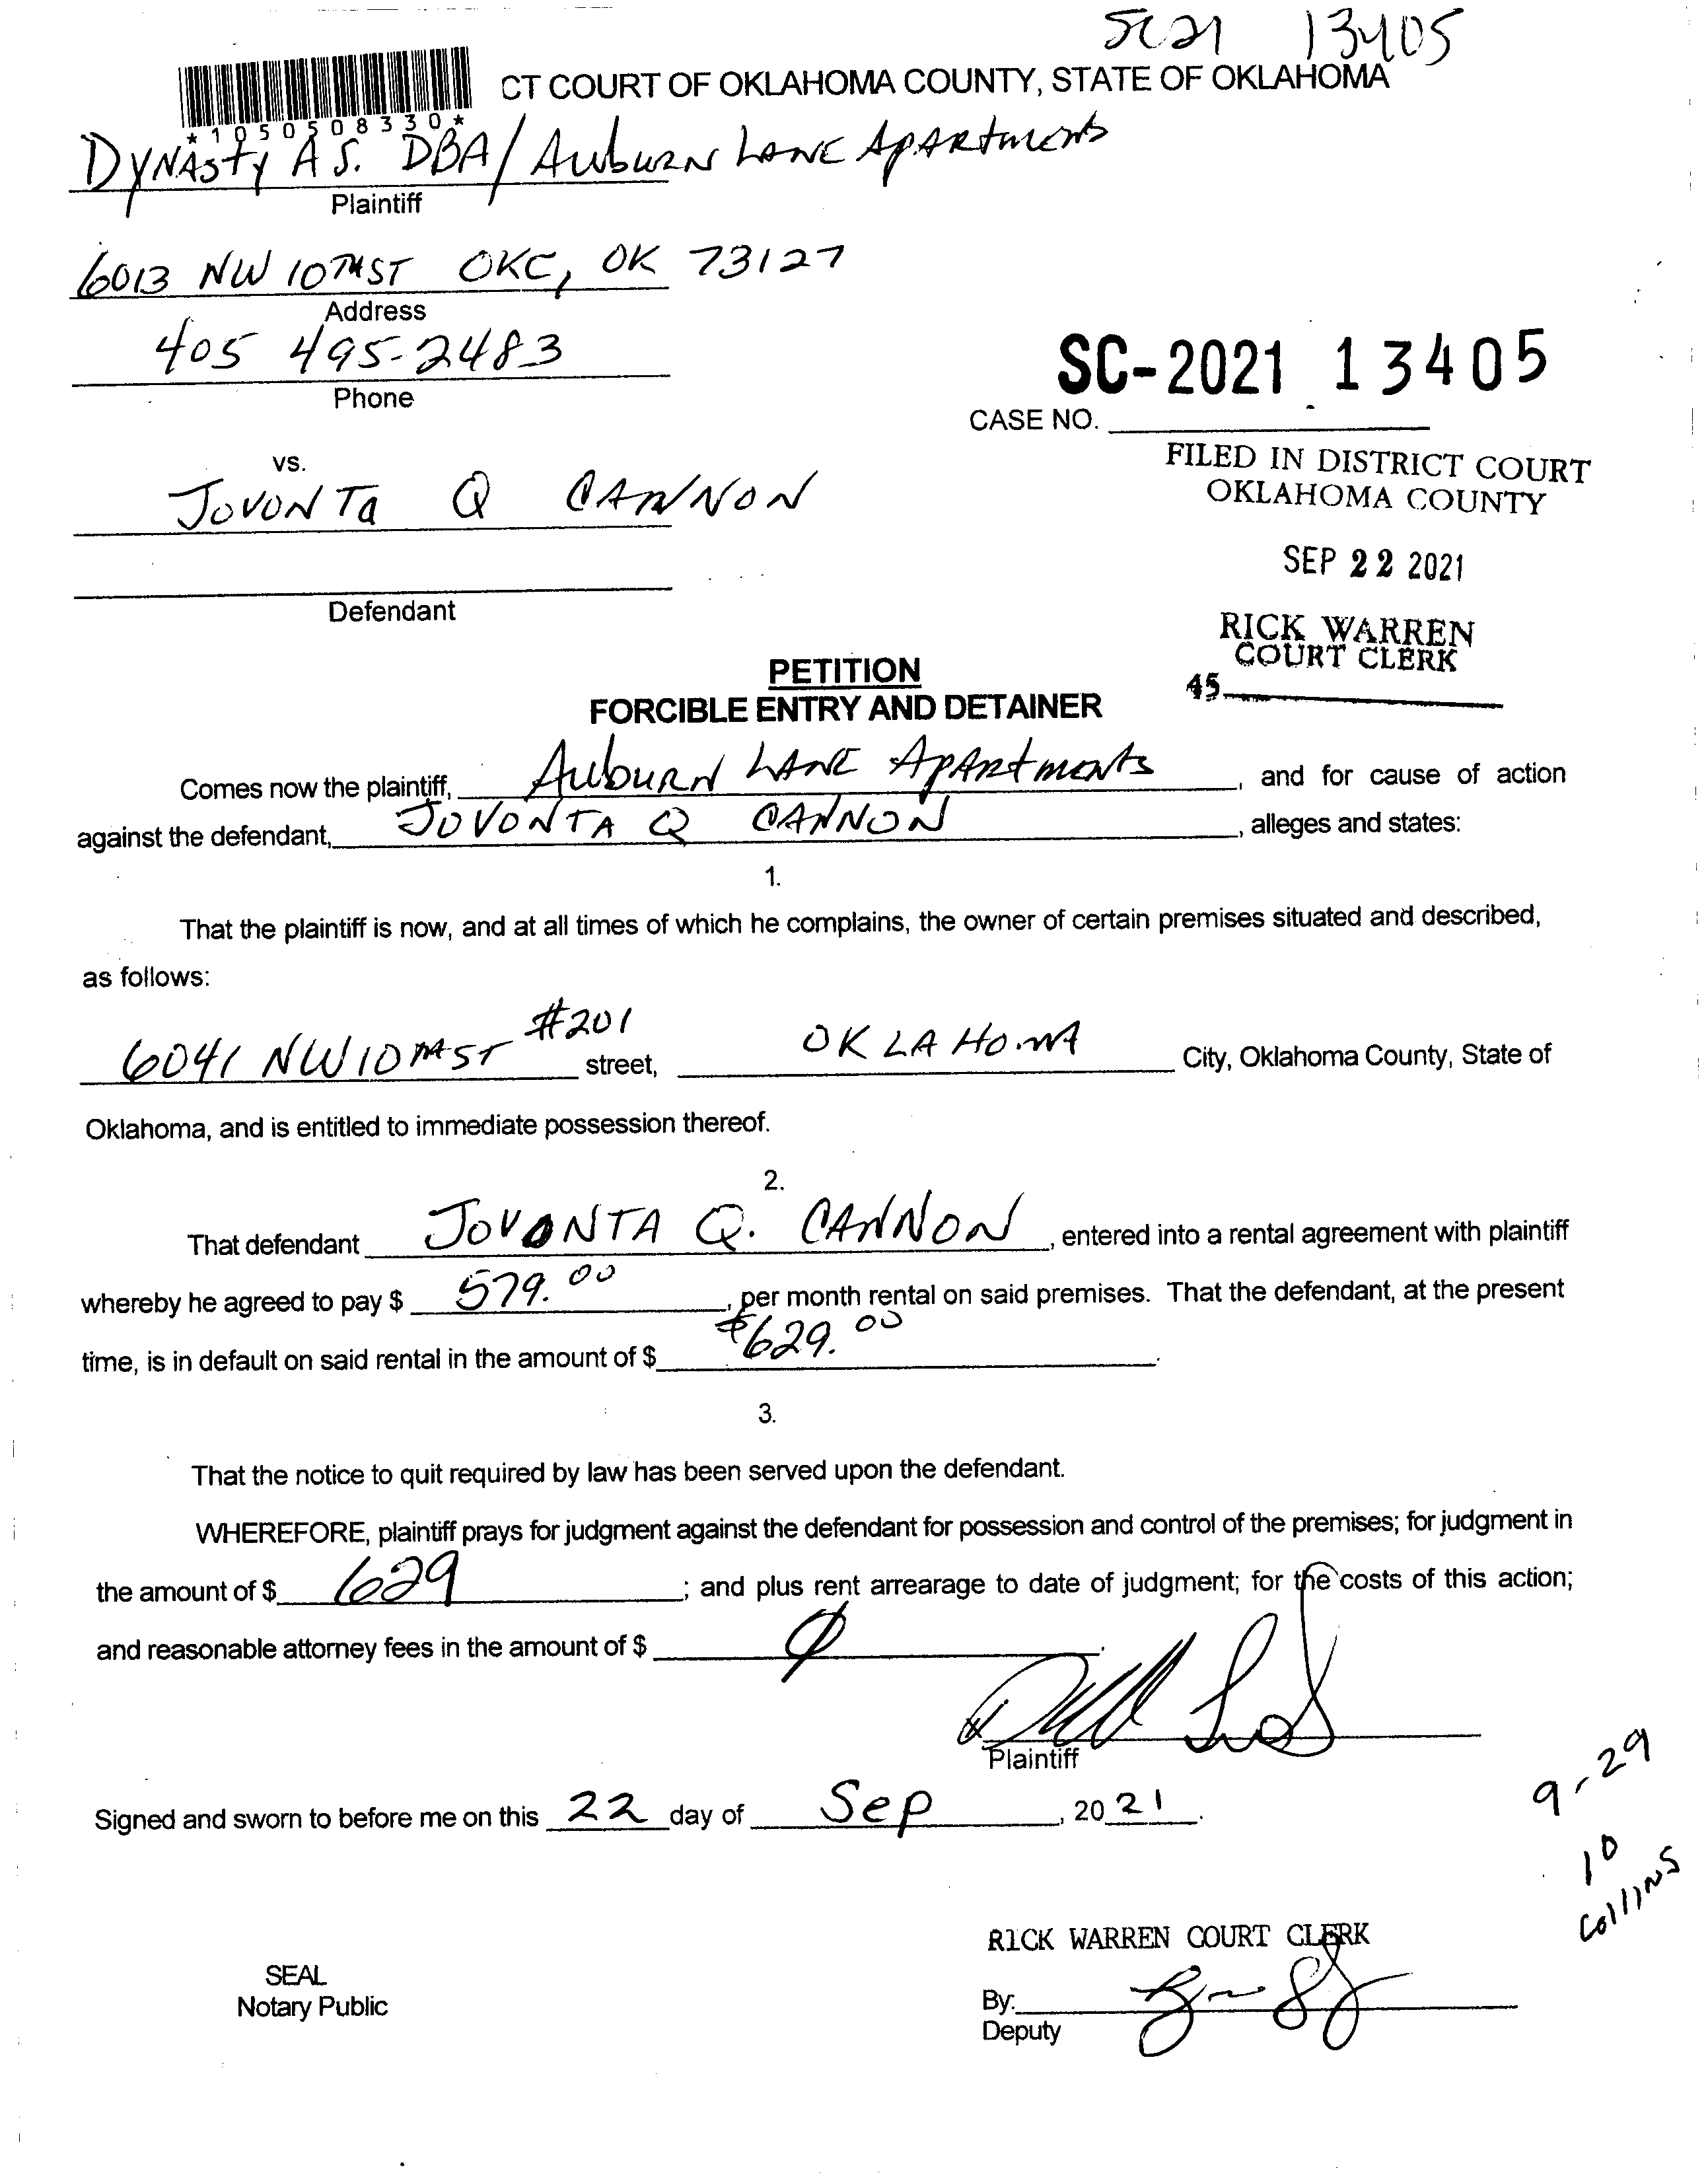 SC21 13405
CT COURT OF OKLAHOMA COUNTY, STATE OF OKLAHOMA
*1050508330*
DYNASTY A S. DBA/ AUBURN LANE APARTMENTS
Plaintiff
6013 NW 10TH ST OKC, OK 73127
Address
405 495-2483
Phone
SC-2021 13405
CASE NO.
FILED IN DISTRICT COURT
OKLAHOMA COUNTY
SEP 22 2021
RICK WARREN
COURT CLERK
45
vs.
JOVONTA Q CANNON
Defendant
PETITION
FORCIBLE ENTRY AND DETAINER
Comes now the plaintiff, AUBURN LANE APARTMENTS, and for cause of action
against the defendant, JOVONTA Q CANNON, alleges and states:
1.
That the plaintiff is now, and at all times of which he complains, the owner of certain premises situated and described,
as follows:
6041 NW 10TH ST #201 street, OKLAHOMA City, Oklahoma County, State of
Oklahoma, and is entitled to immediate possession thereof.
2.
That defendant JOVONTA Q. CANNON, entered into a rental agreement with plaintiff
whereby he agreed to pay $ 579.00, per month rental on said premises. That the defendant, at the present
time, is in default on said rental in the amount of $ $629.00.
3.
That the notice to quit required by law has been served upon the defendant.
WHEREFORE, plaintiff prays for judgment against the defendant for possession and control of the premises; for judgment in
the amount of $ 629; and plus rent arrearage to date of judgment; for the costs of this action;
and reasonable attorney fees in the amount of $ 0.
Plaintiff
Signed and sworn to before me on this 22 day of Sep, 20 21.
9-29
10
Collins
RICK WARREN COURT CLERK
SEAL
Notary Public
By:
Deputy